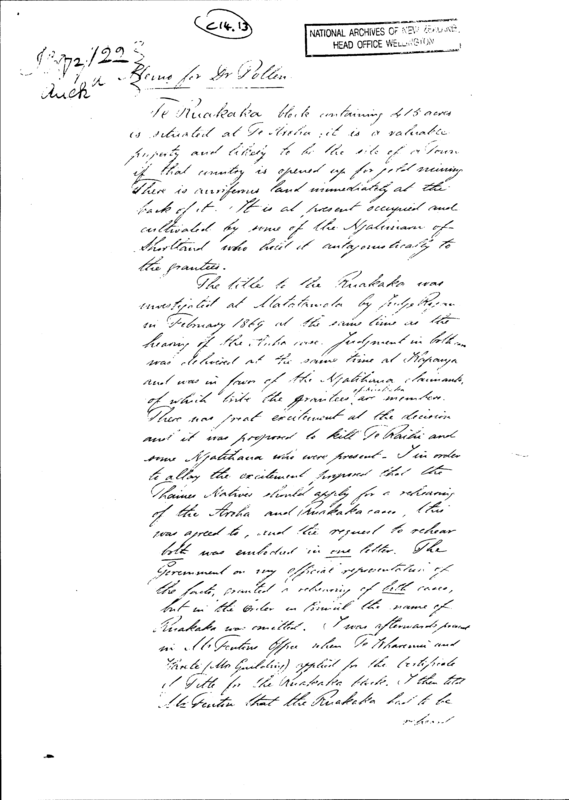 C14.13
NATIONAL ARCHIVES OF NEW ZEALAND
HEAD OFFICE WELLINGTON
1872/122
Auckd
Memo for Dr Pollen
Te Ruakaka block containing 415 acres
is situated at Te Aroha; it is a valuable
property and likely to be the site of a town
if that country is opened up for gold mining
There is auriferous land immediately at the
back of it. It is at present occupied and
cultivated by some of the Ngatimaru of
Shortland who hold it antagonistically to
the grantees.
The title to the Ruakaka was
investigated at Matamata by Judge Rogan
in February 1869 at the same time as the
hearing of the Aroha case. Judgment in both
was delivered at the same time at Kapanga
and was in favor of the Ngatihaua claimants,
of which tribe the grantees of Ruakaka are members.
There was great excitement at the decision
and it was proposed to kill Te Raihi and
some Ngatihaua who were present. I in order
to allay the excitement proposed that the
Thames Natives should apply for a rehearing
of the Aroha and Ruakaka cases, this
was agreed to, and the request to rehear
both was embodied in one letter. The
Government on my official representation of
the facts, granted a rehearing of both cases,
but in the Order in Council the name of
Ruakaka was omitted. I was afterwards present
in Mr Fenton's Office when Te Wharenui and
(Mrs Goulding) applied for the Certificate
of Title for the Ruakaka block. I then told
Mr Fenton that the Ruakaka had to be
reheard